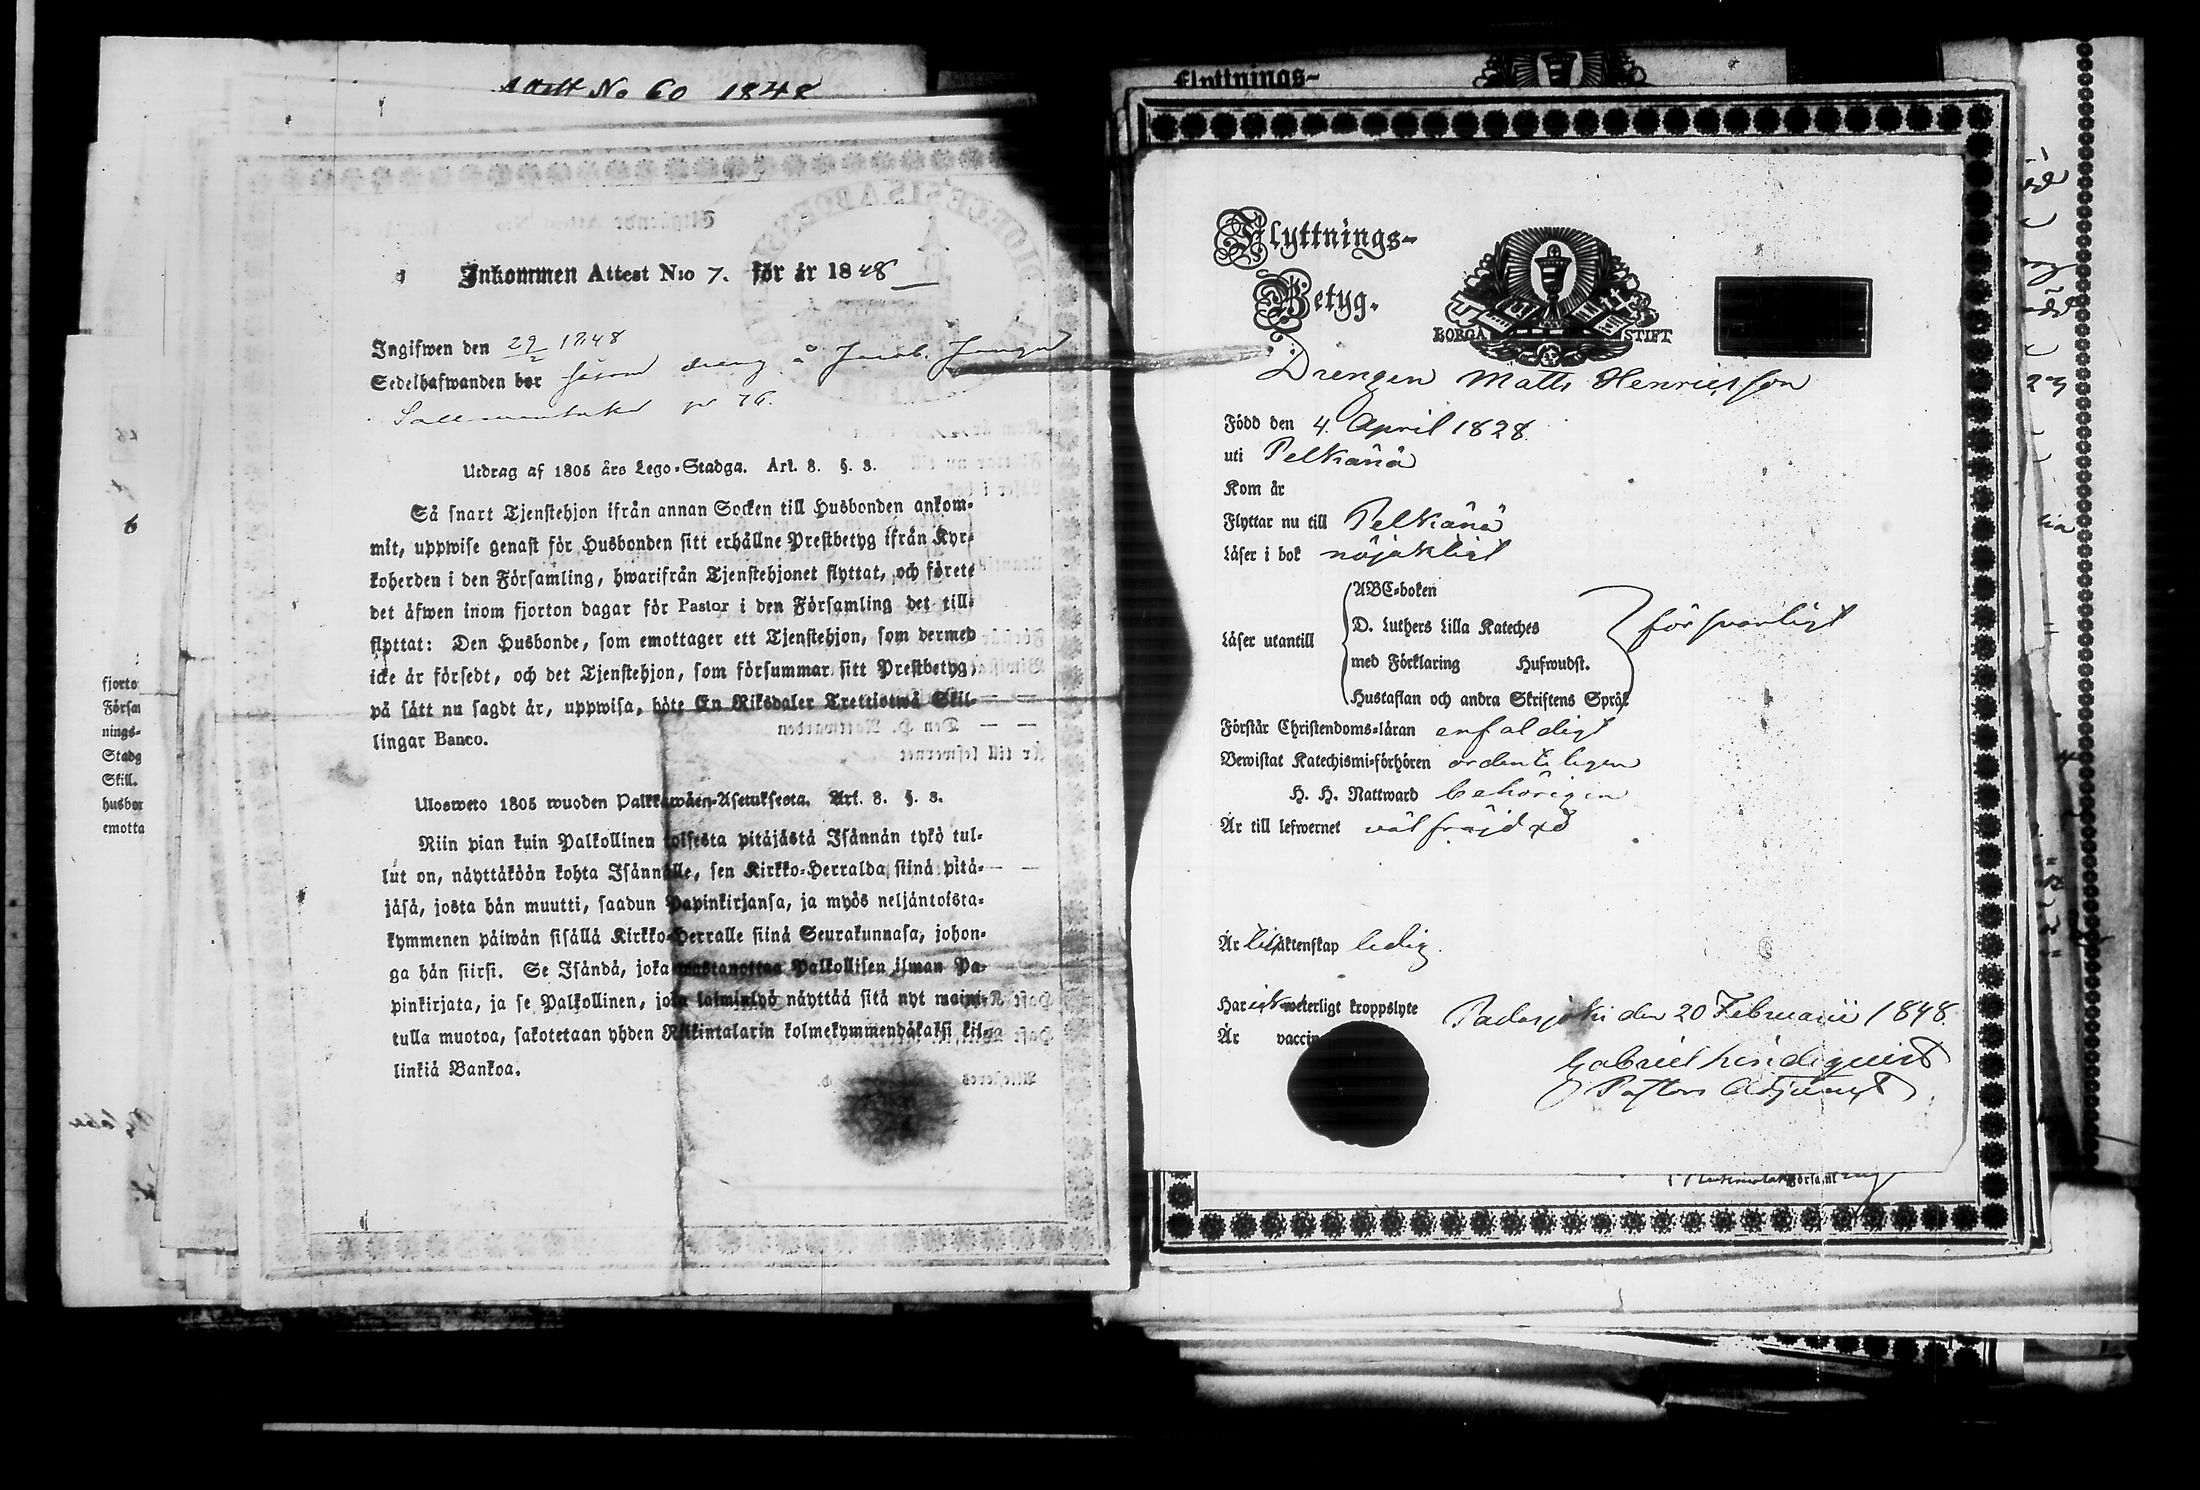 Attest No 60 1848
Inkommen Attest N:o 7. för år 1848
Ingifwen den 29/2 1848
Sedelhafwanden bor såsom dreng å
Utdrag af 1805 års Lego-Stadga. Art. 8. §. 3.
Så snart Tjenstehjon ifrån annan Socken till Husbonden ankom-
mit, uppwise genast för Husbonden sitt erhållne Prestbetyg ifrån Kyr-
koherden i den Församling, hwarifrån Tjenstehjonet flyttat, och förete
det äfwen inom fjorton dagar för Pastor i den Församling det till-
flyttat: Den Husbonde, som emottager ett Tjenstehjon, som dermed
icke är försedt, och det Tjenstehjon, som försummar sitt Prestbetyg,
på sätt nu sagdt är, uppwisa, böte En Riksdaler Trettiotwå Skil-
lingar Banco.
Ulosweto 1805 wuoden Palkkawäen-Asetuksesta. Art. 8. §. 3.
Niin pian kuin Palkollinen toisesta pitäjästä Isännän tykö tul-
lut on, näyttäköön kohta Isännälle, sen Kirkko-Herralda siinä pitä-
jäsä, josta hän muutti, saadun Papinkirjansa, ja myös neljäntoista-
kymmenen päiwän sisällä Kirkko-Herralle siinä Seurakunnasa, johon-
ga hän siirsi. Se Isändä, joka wastanottaa Palkollisen ilman Pa-
pinkirjata, ja se Palkollinen, joka laiminlyö näyttää sitä nyt maini-
tulla muotoa, sakotetaan yhden Riikintalarin kolmekymmendäkaksi kil-
linkiä Bankoa.
fjorto
Försa
nings-
Stadg
Skill.
husbor
emotta
Flyttnings-
Flyttnings-
Betyg.
BORGÅ STIFT
Drengen Matts Henricsson
Född den 4 April 1828.
uti Pelkänä
Kom år
Flyttar nu till Pelkänä
Läser i bok nöjaktligt
ABC-boken
D. Luthers Lilla Kateches
Läser utantill försvarligt
med Förklaring Hufwudst.
Hustaflan och andra Skriftens Språk
Förstår Christendoms-läran enfaldigt
Bewistat Katechismi-förhören ordenteligen
H. H. Nattward behörigen
Är till lefwernet väl fräjdad
Är till äktenskap ledig.
Har icke weterligt kroppslyte
Är vaccin
Padasjoki den 20 Februarii 1848.
Gabriel Lindequist
Pastors Adjunct